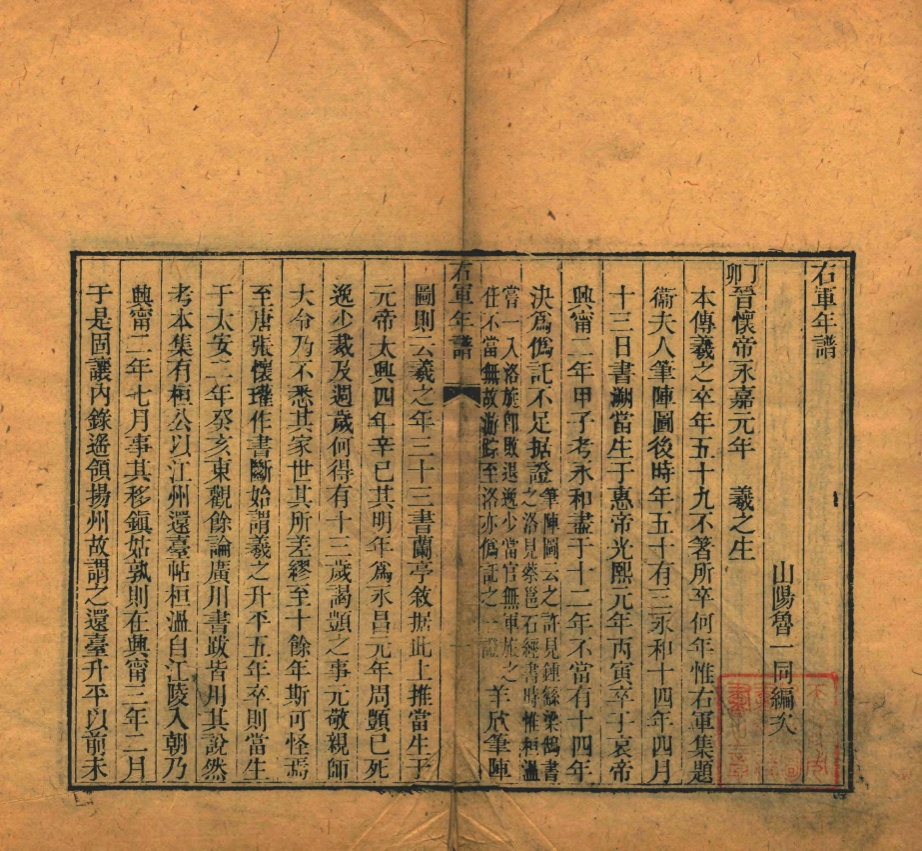 右軍年譜
山陽魯一同編次
丁卯晉懷帝永嘉元年 羲之生
本傳羲之卒年五十九不著所卒何年惟右軍集題
衞夫人筆陣圖後時年五十有三永和十四年四月
十三日書溯當生于惠帝光熙元年丙寅卒于哀帝
興甯二年甲子考永和盡于十二年不當有十四年
決爲僞託不足据證筆陣圖云之許見鍾繇梁鵠書
之洛見蔡邕石經書時惟桓溫
嘗一入洛旋卽敗退逸少當官無軍旅之
任不當無故游踪至洛亦僞託之一證羊欣筆陣
右軍年譜 一
圖則云羲之年三十三書蘭亭敘据此上推當生于
元帝太興四年辛巳其明年爲永昌元年周顗已死
逸少裁及週歲何得有十三歲謁顗之事元敬親師
大令乃不悉其家世其所差繆至十餘年斯可怪焉
至唐張懷瓘作書斷始謂羲之升平五年卒則當生
于太安二年癸亥東觀餘論廣川書跋皆用其說然
考本集有桓公以江州還臺帖桓溫自江陵入朝乃
興甯二年七月事其移鎮姑孰則在興甯三年二月
于是固讓內錄遙領揚州故謂之還臺升平以前未